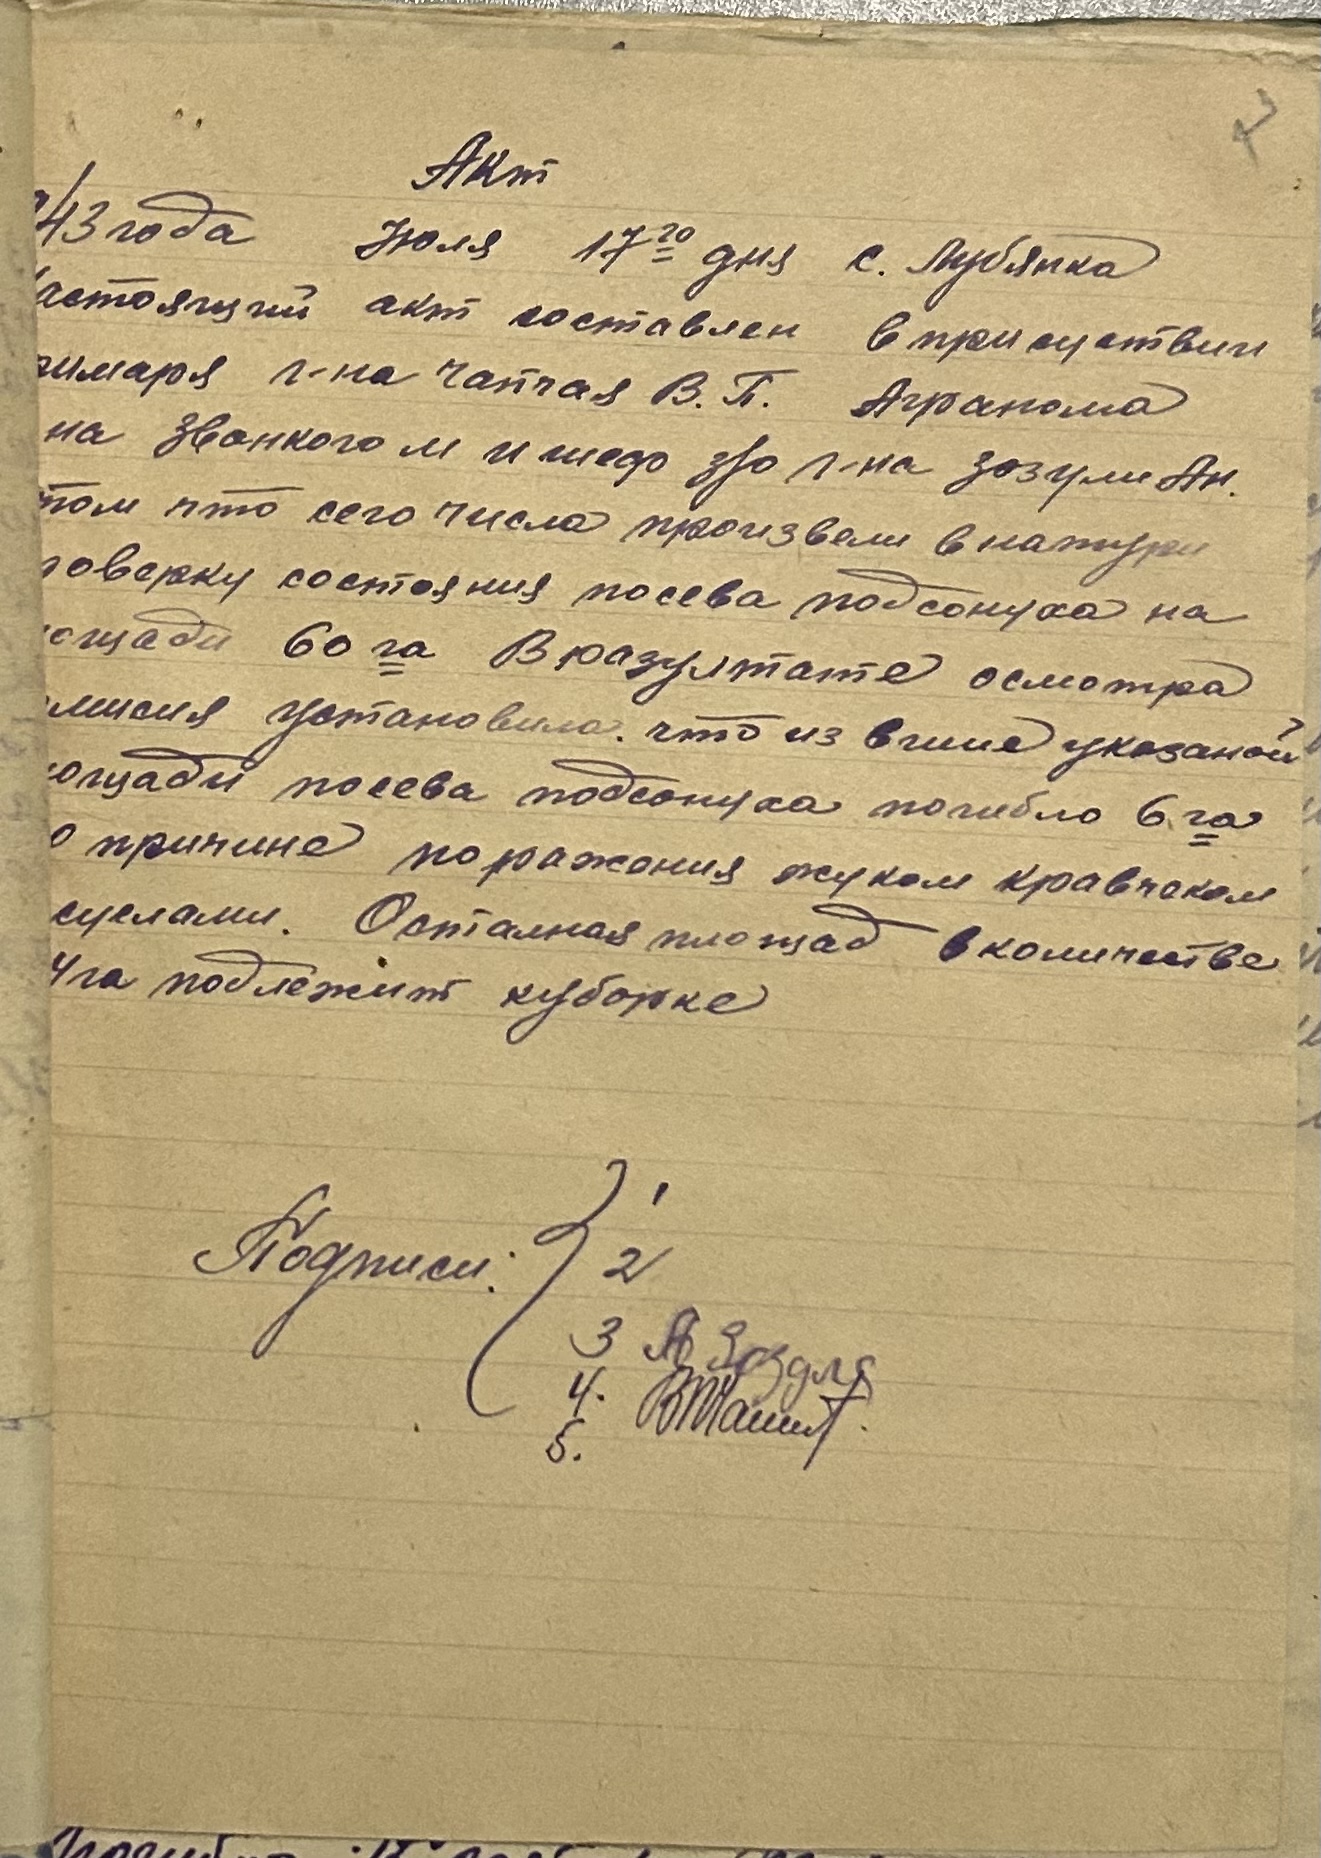 Акт
943 года Июля 17го дня с. Лубянка
Настоящий акт составлен в присуствии
римаря г-на Чапчая В. П. Агранома
на Звонкого М и шеф г-на Зозули Ан.
том что сего числа произвели в натури
роверку состояния посева подсонуха на
ощади 60 га В разултате осмотра
омисия установила. что из више указаной
ощади посева подсонуха погибло 6 га
о причине поражения жуком кравчеком
суслами. Осталная площад в количестве
4 га подлежит куборке
Подписи: 1
2
3 А
4.
5.